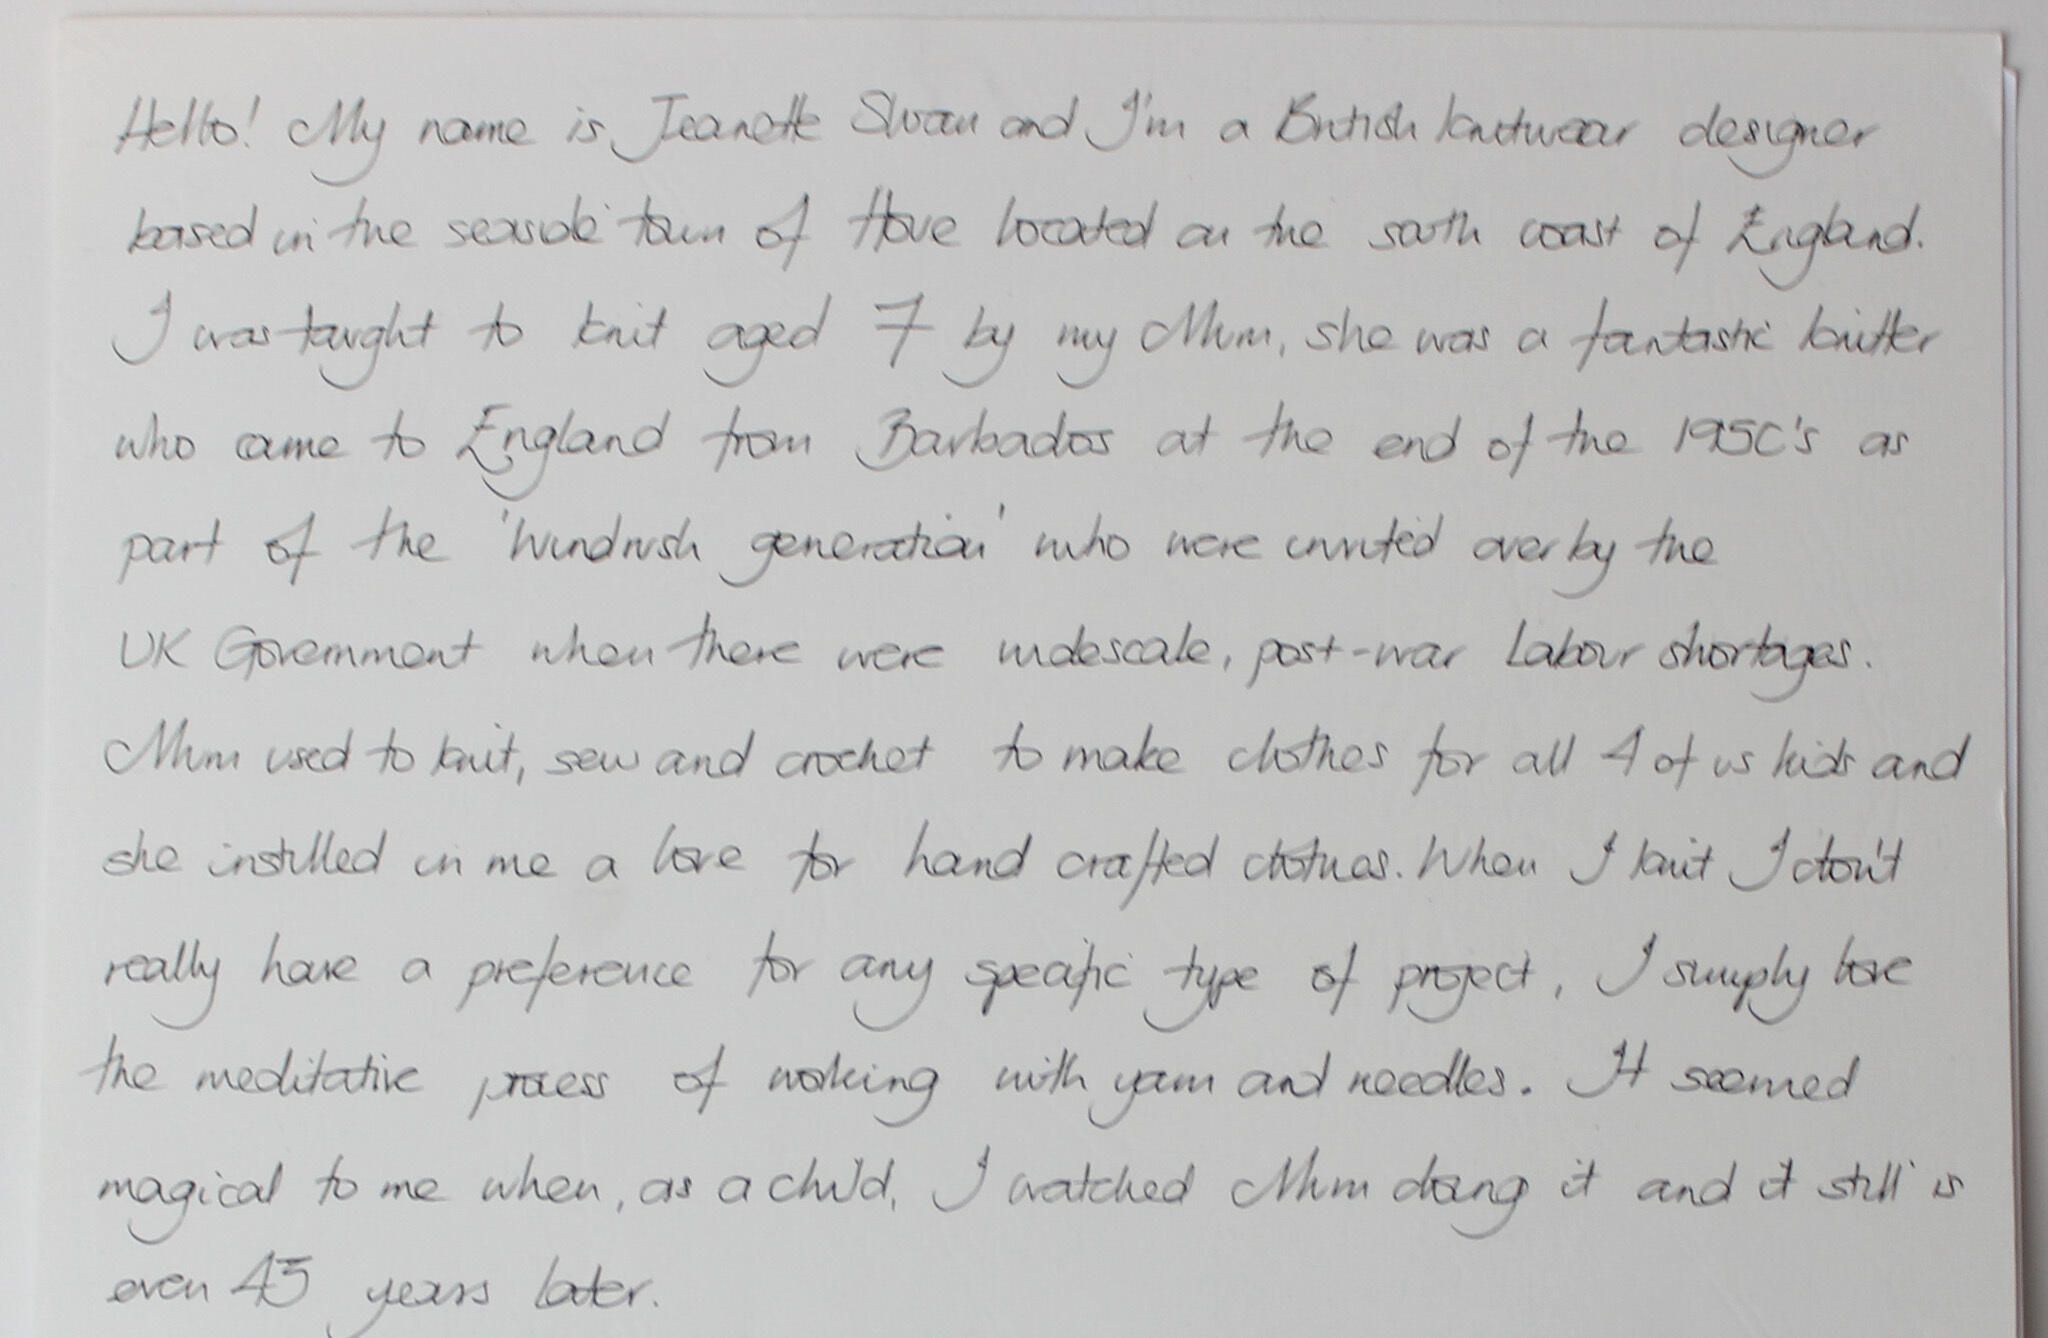 Hello! My name is Jeanette Sloan and I'm a British knitwear designer
based in the seaside town of Hove located on the south coast of England.
I was taught to knit aged 7 by my Mum, she was a fantastic knitter
who came to England from Barbados at the end of the 1950's as
part of the 'Windrush generation' who were invited over by the
UK Government when there were widescale, post-war Labour shortages.
Mum used to knit, sew and crochet to make clothes for all 4 of us kids and
she instilled in me a love for hand crafted clothes. When I knit I don't
really have a preference for any specific type of project, I simply love
the meditative process of working with yarn and needles. It seemed
magical to me when, as a child, I watched Mum doing it and it still is
even 45 years later.